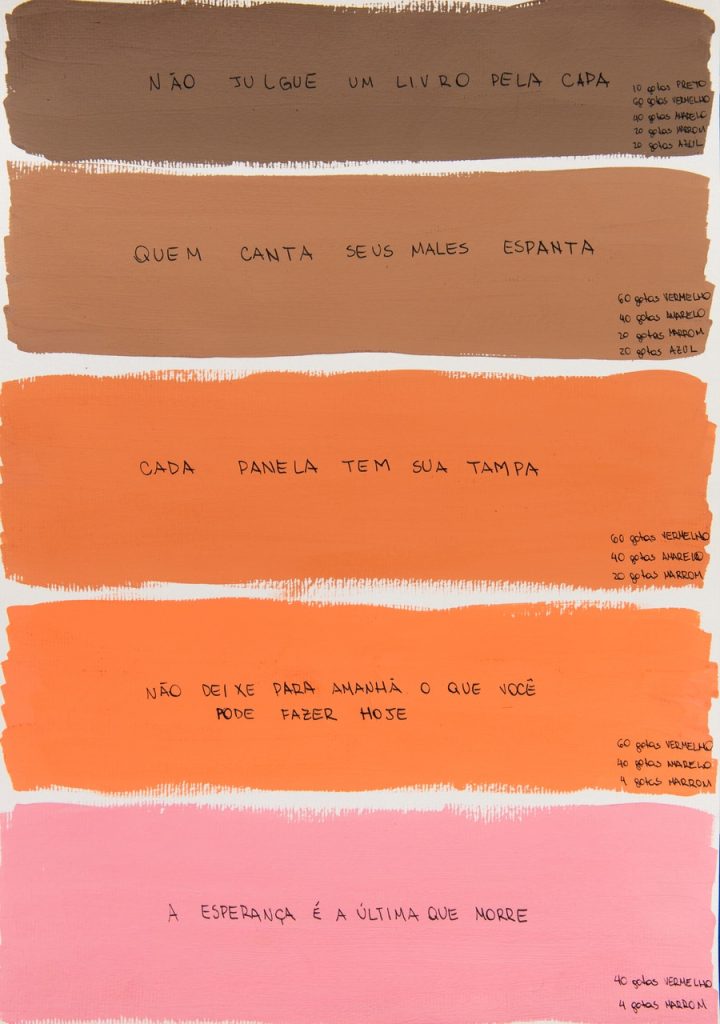 NÃO JULGUE UM LIVRO PELA CAPA
10 gotas PRETO
60 gotas VERMELHO
40 gotas AMARELO
20 gotas MARROM
20 gotas AZUL
QUEM CANTA SEUS MALES ESPANTA
60 gotas VERMELHO
40 gotas AMARELO
20 gotas MARROM
20 gotas AZUL
CADA PANELA TEM SUA TAMPA
60 gotas VERMELHO
40 gotas AMARELO
20 gotas MARROM
NÃO DEIXE PARA AMANHÃ O QUE VOCÊ
PODE FAZER HOJE
60 gotas VERMELHO
40 gotas AMARELO
4 gotas MARROM
A ESPERANÇA É A ÚLTIMA QUE MORRE
40 gotas VERMELHO
4 gotas MARROM